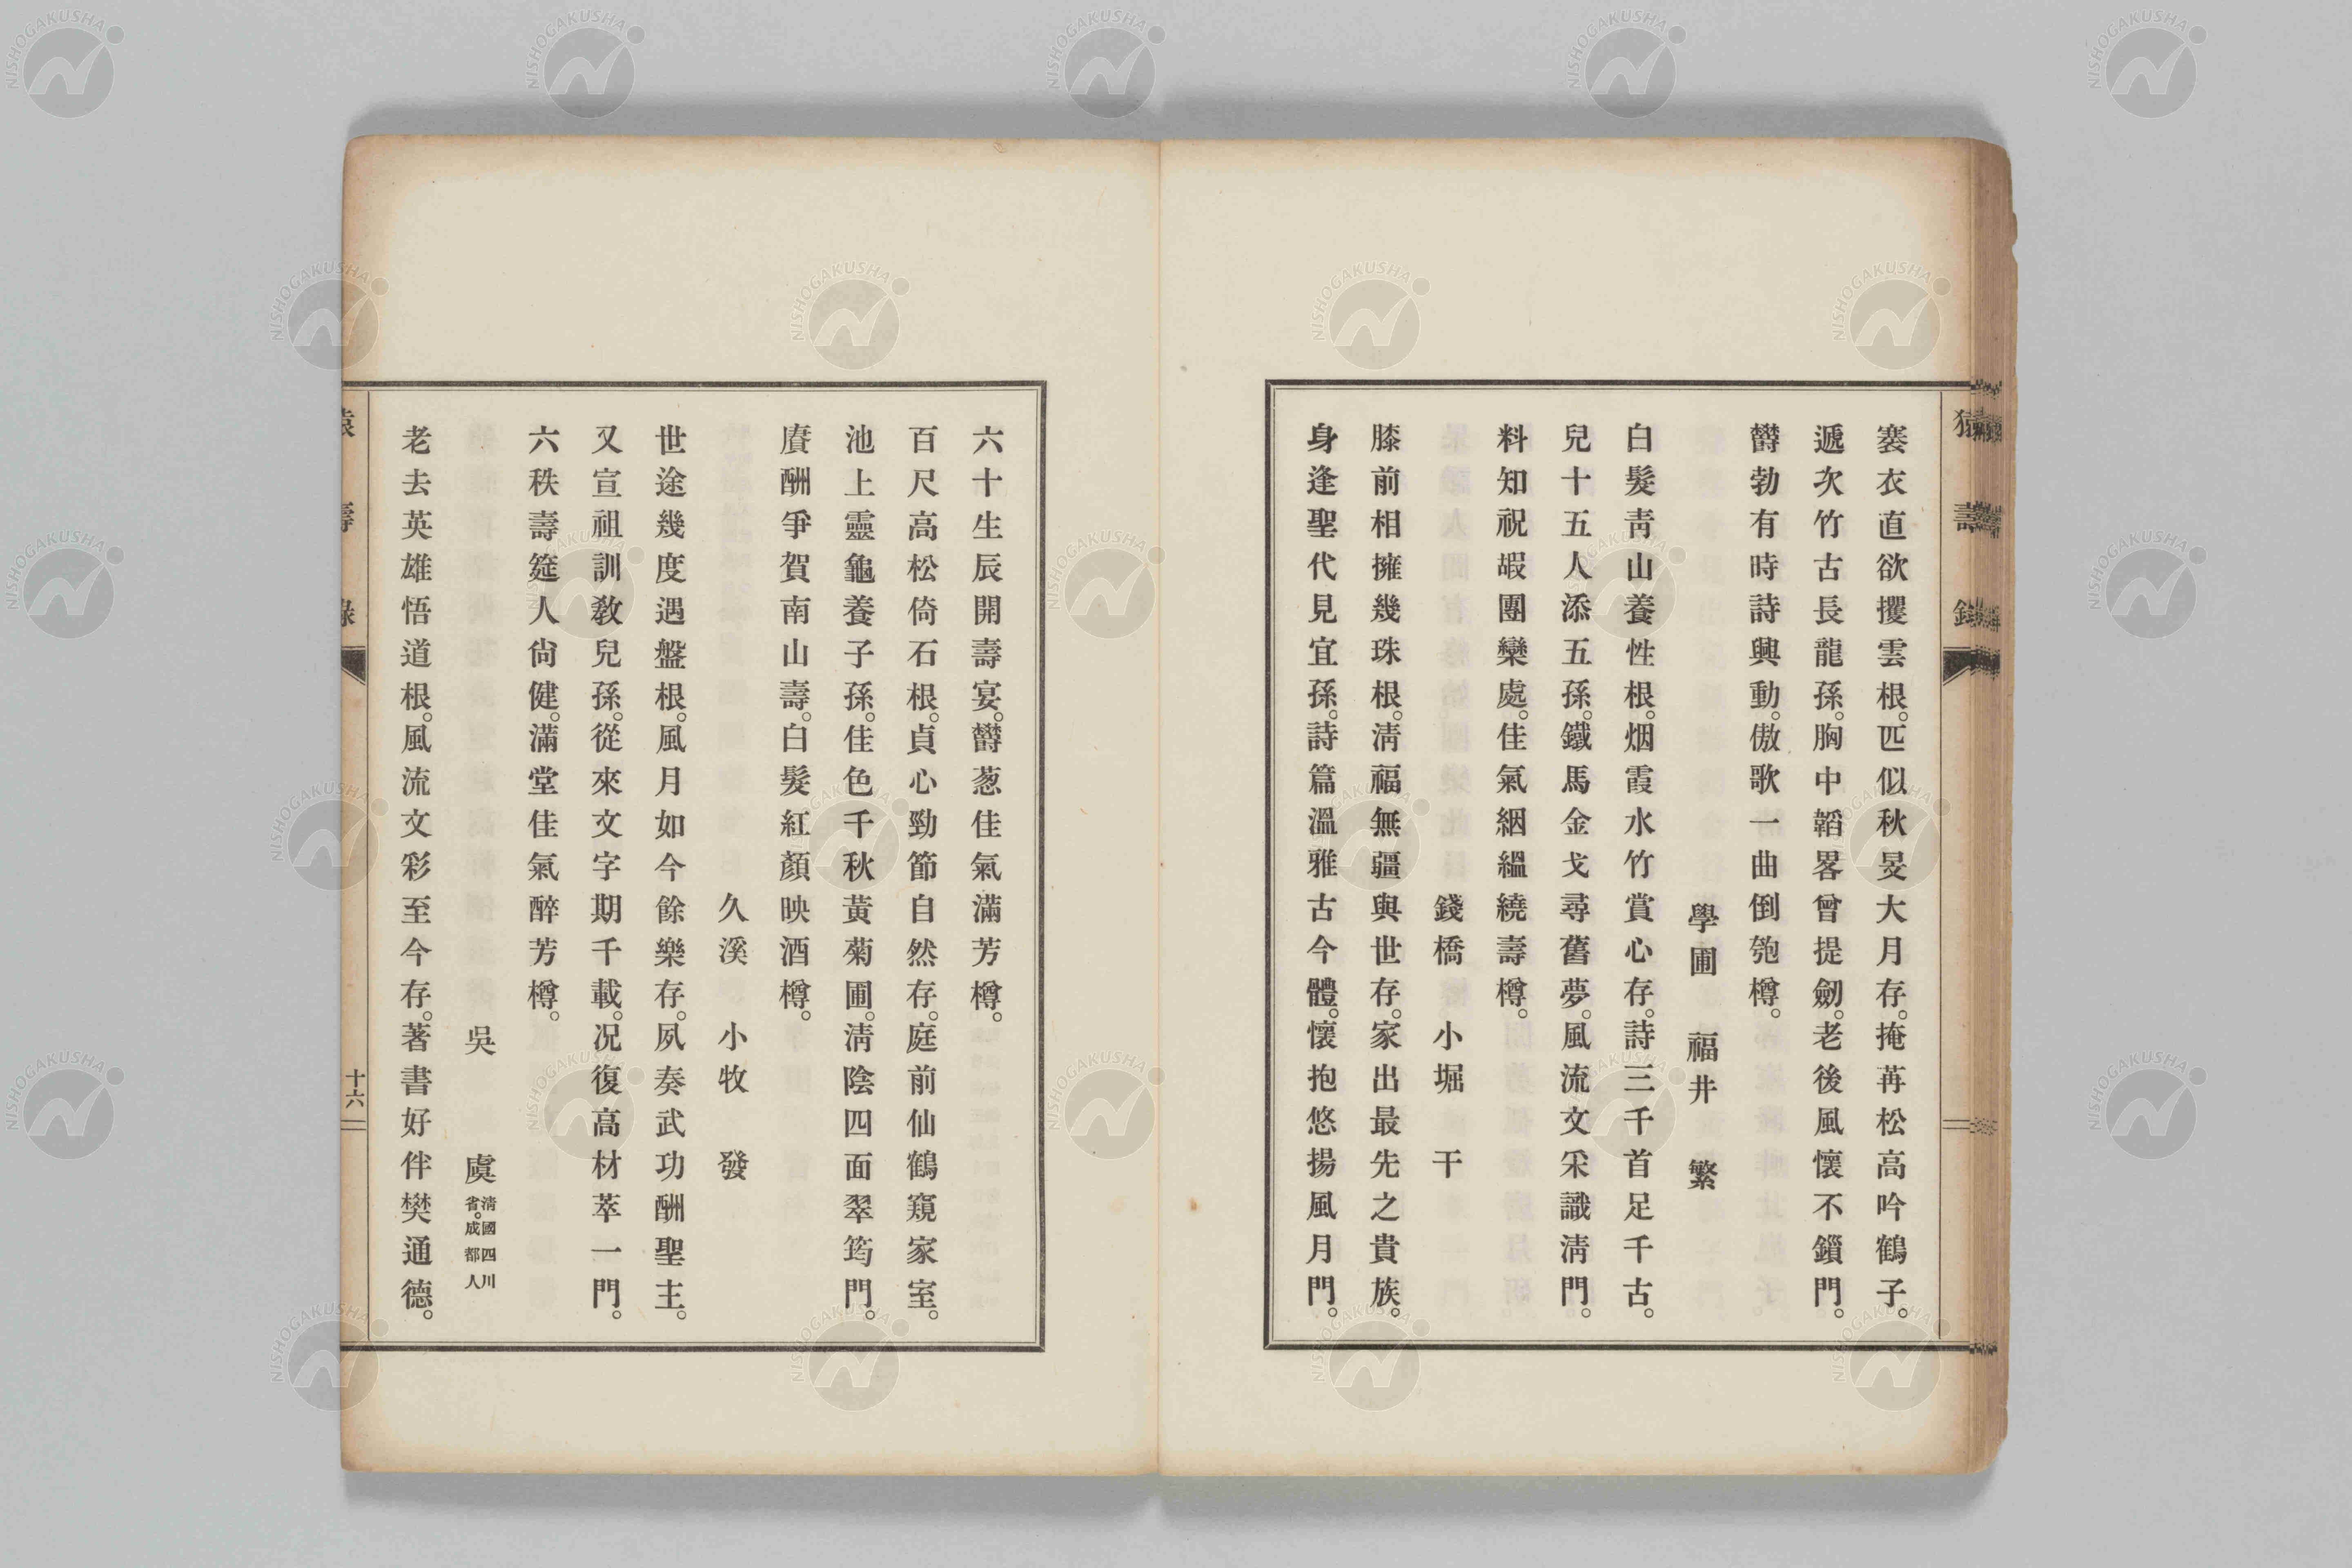 褰衣直欲攖雲根。匹似秋旻大月存。掩苒松高吟鶴子。
遞次竹古長龍孫。胸中韜畧曾提劒。老後風懷不鎻門。
欝勃有時詩興動。傲歌一曲倒匏樽。
學圃 福井 繁
白髮靑山養性根。烟霞水竹賞心存。詩三千首足千古。
兒十五人添五孫。鐵馬金戈尋舊夢。風流文采識淸門。
料知祝嘏團欒處。佳氣絪縕繞壽樽。
錢橋 小堀 干
膝前相擁幾珠根。淸福無疆與世存。家出最先之貴族。
身逢聖代見宜孫。詩篇溫雅古今體。懷抱悠揚風月門。
六十生辰開壽宴。欝葱佳氣滿芳樽。
百尺高松倚石根。貞心勁節自然存。庭前仙鶴窺家室。
池上靈龜養子孫。佳色千秋黃菊圃。淸陰四面翠筠門。
賡酬爭賀南山壽。白髮紅顏映酒樽。
久溪 小牧 發
世途幾度遇盤根。風月如今餘樂存。夙奏武功酬聖主。
又宣祖訓敎兒孫。從來文字期千載。况復高材萃一門。
六秩壽筵人尙健。滿堂佳氣醉芳樽。
吳 虞 淸國四川省。成都人
老去英雄悟道根。風流文彩至今存。著書好伴樊通德。
壽
十六
NISHOGAKUSHA